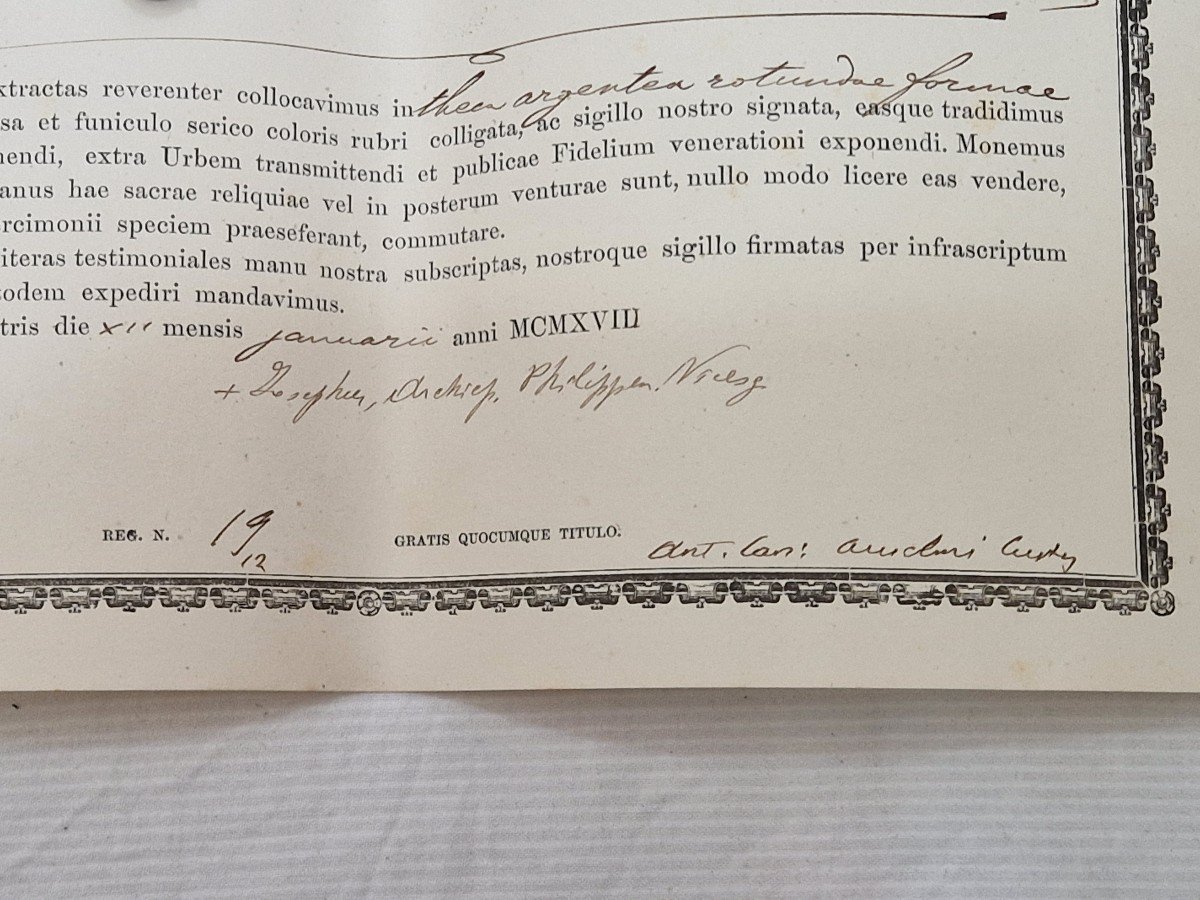 xtractas reverenter collocavimus in theca argentea rotundae formae
sa et funiculo serico coloris rubri colligata, ac sigillo nostro signata, easque tradidimus
nendi, extra Urbem transmittendi et publicae Fidelium venerationi exponendi. Monemus
anus hae sacrae reliquiae vel in posterum venturae sunt, nullo modo licere eas vendere,
ercimonii speciem praeseferant, commutare.
iteras testimoniales manu nostra subscriptas, nostroque sigillo firmatas per infrascriptum
todem expediri mandavimus.
tris die XII mensis januarii anni MCMXVIII
+ Josephus, Archiep. Philippen. Vicesg.
REG. N. 19/12 GRATIS QUOCUMQUE TITULO.
Ant. Can: